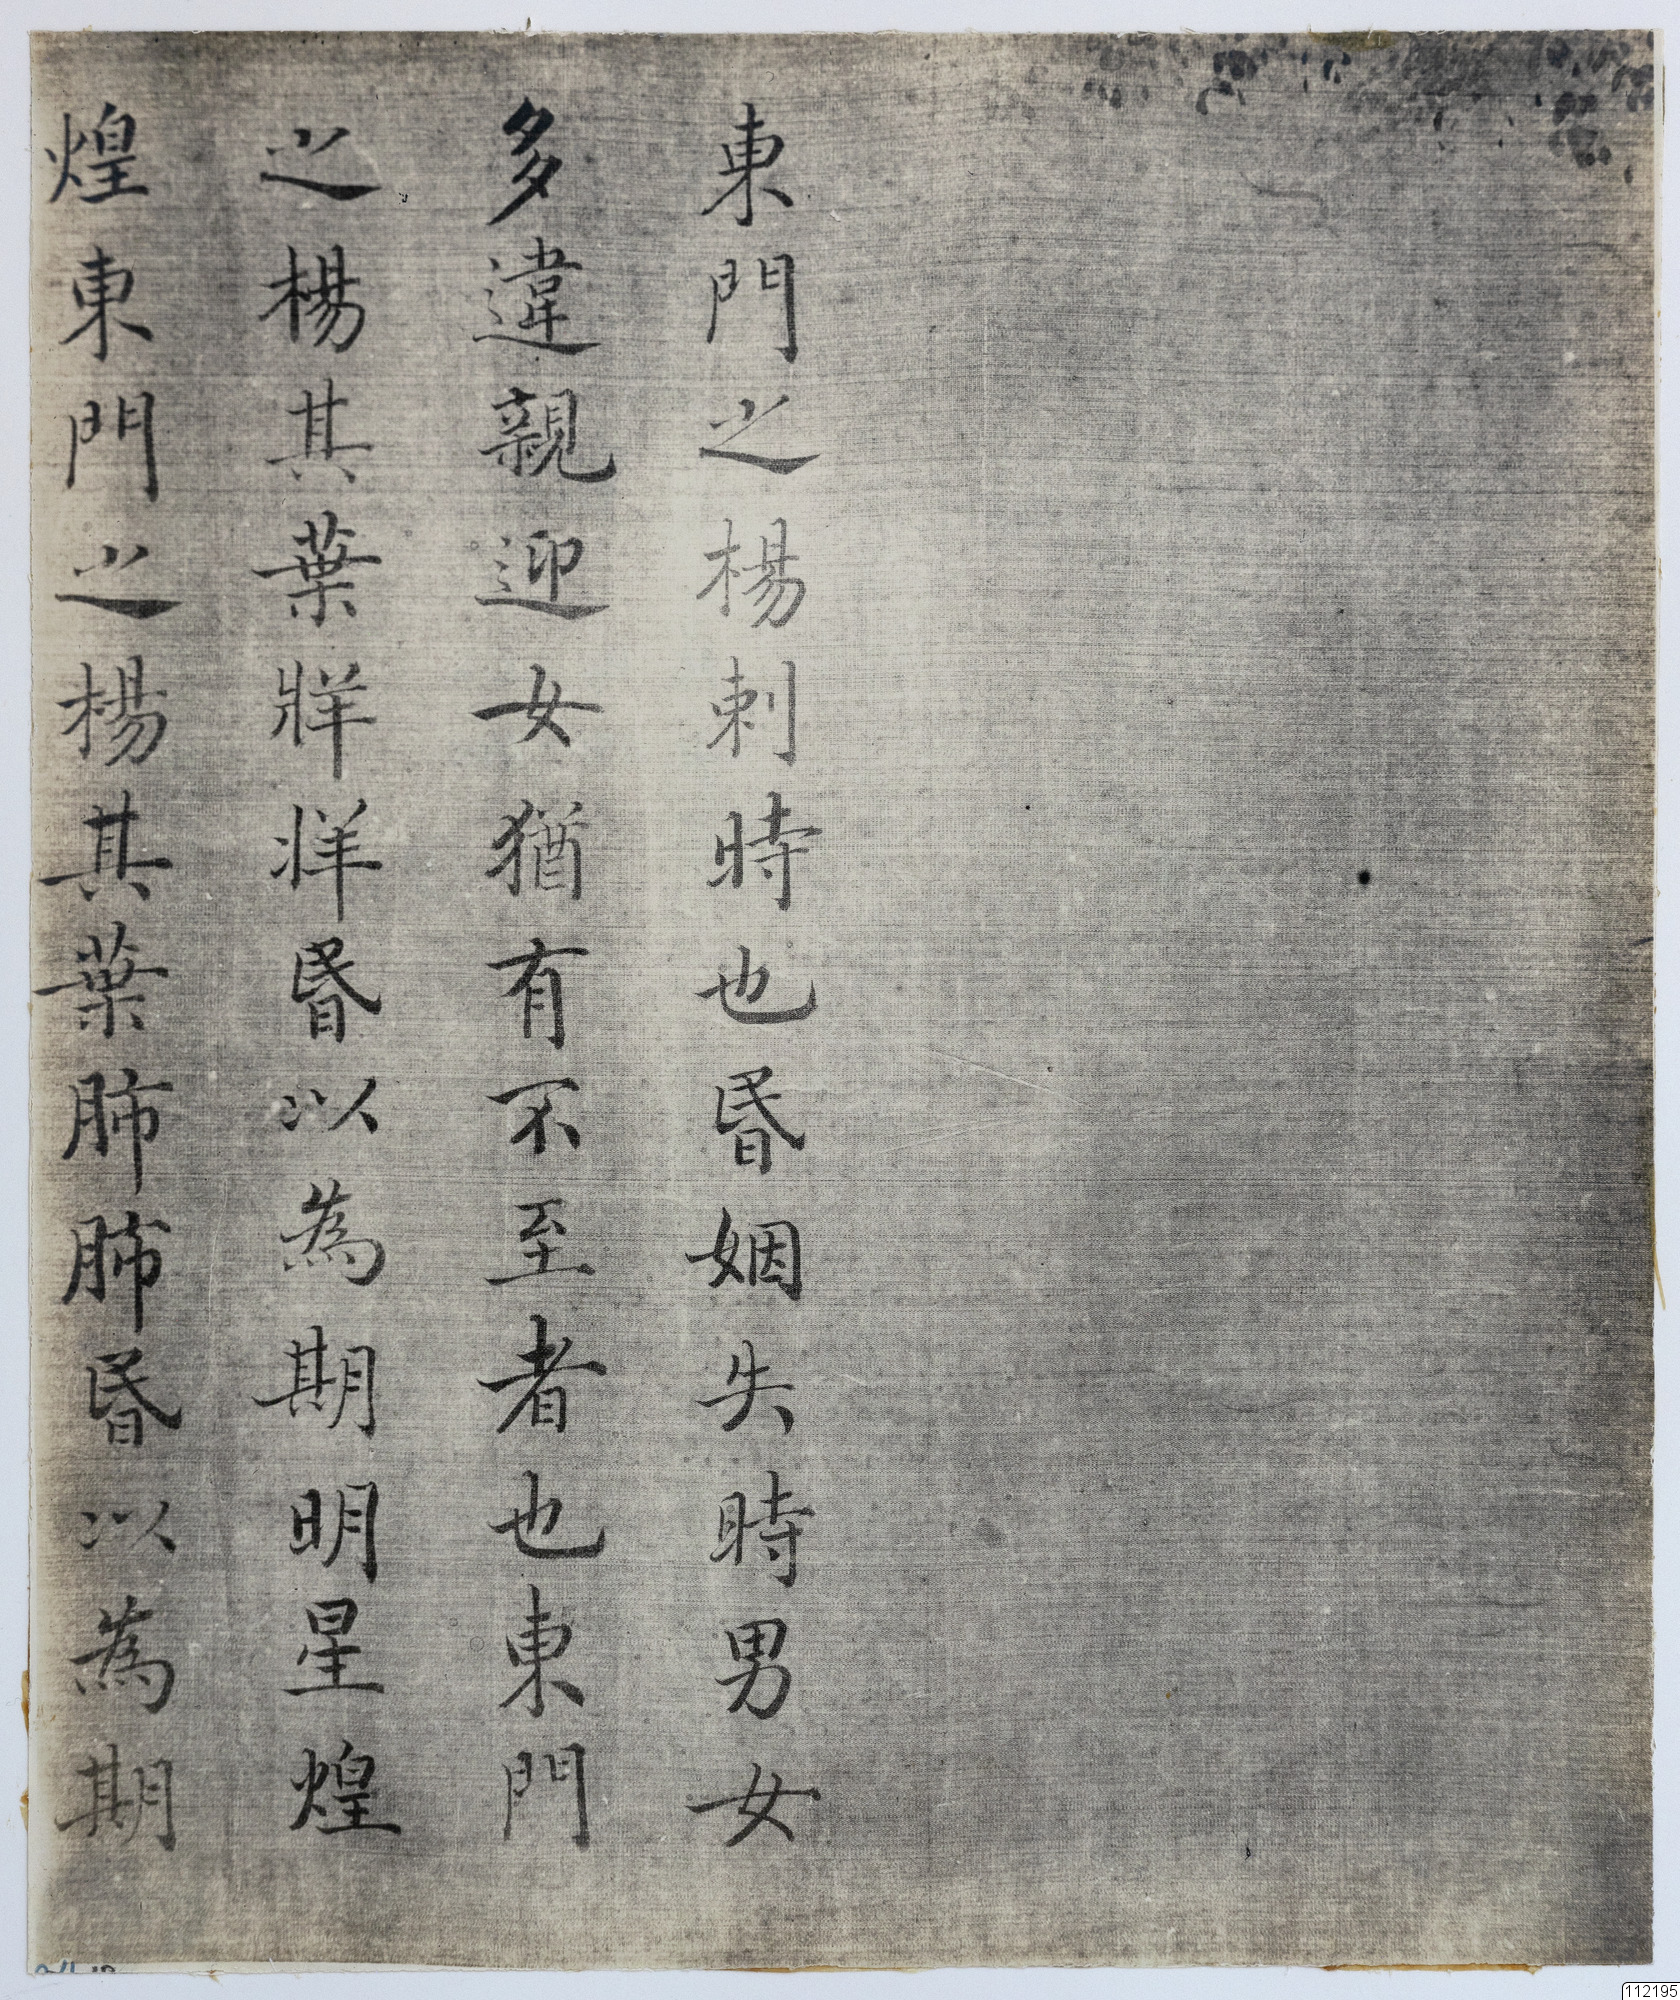 東門之楊刺時也昬姻失時男女
多違親迎女猶有不至者也東門
之楊其葉牂牂昬以為期明星煌
煌東門之楊其葉肺肺昬以為期
112195